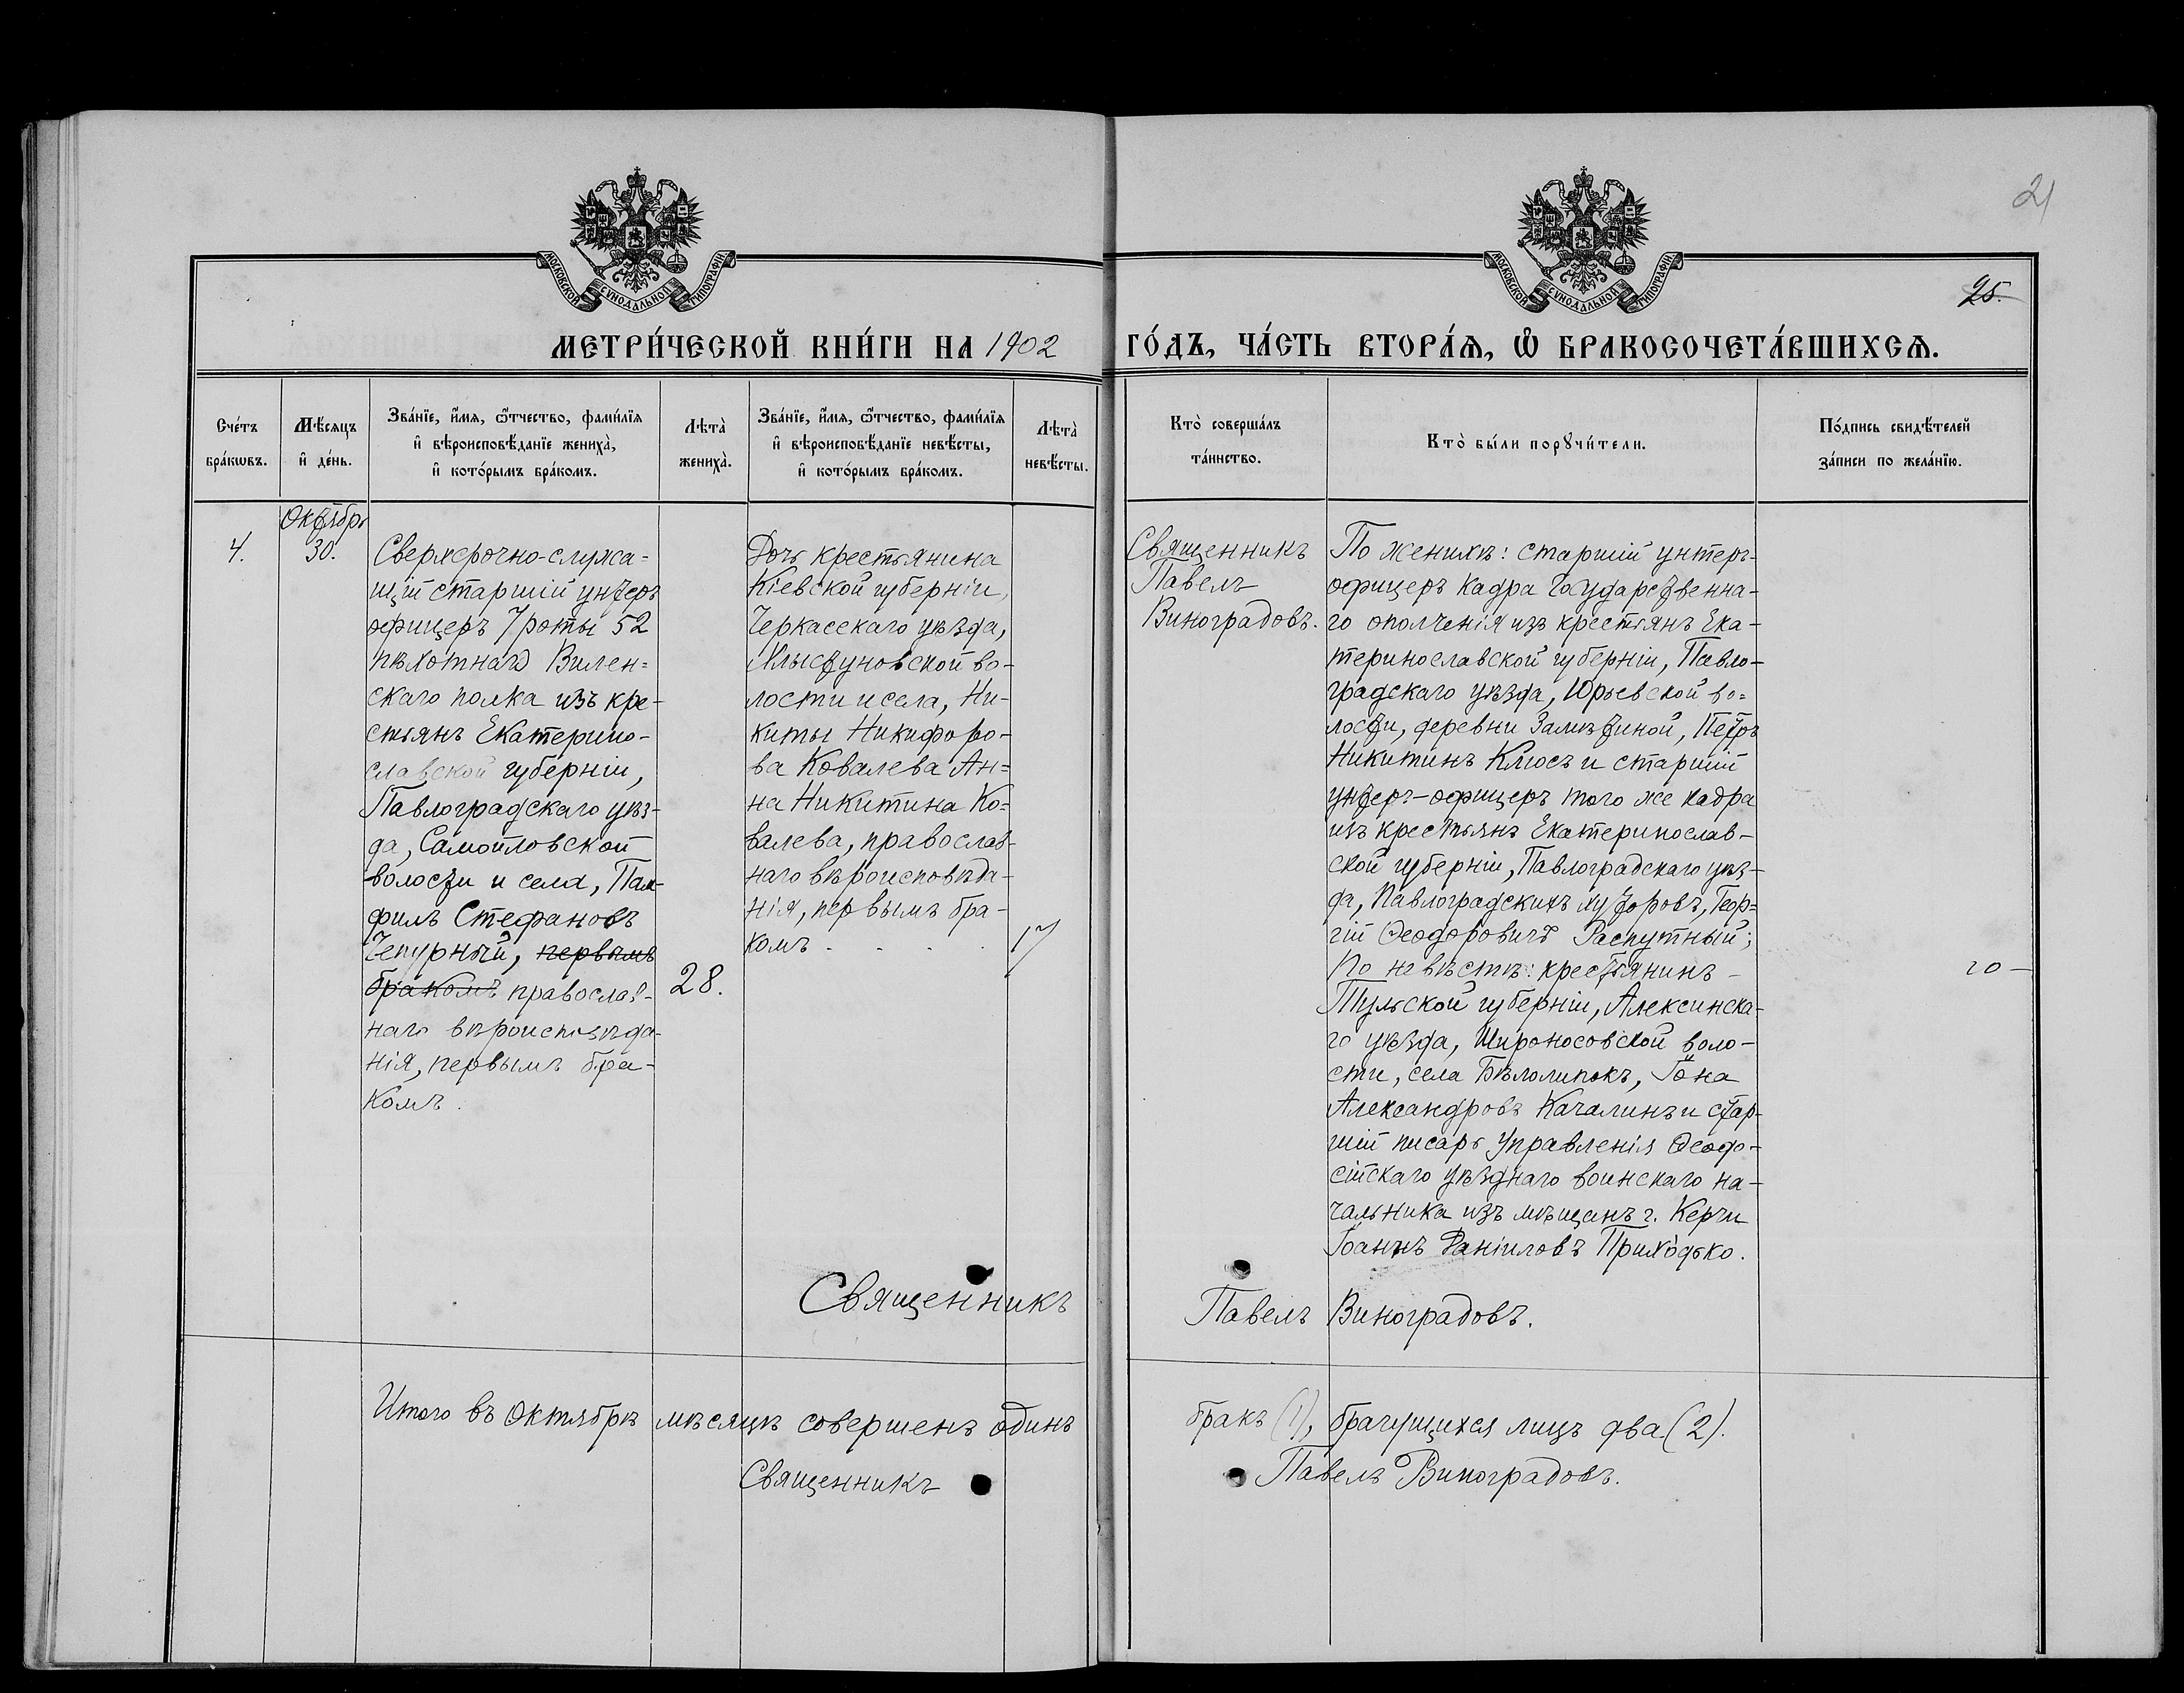 21
25.
МОСКОВСКОЙ СѴНОДАЛЬНОЙ ТИПОГРАФІИ
МОСКОВСКОЙ СѴНОДАЛЬНОЙ ТИПОГРАФІИ
МЕТРИ́ЧЕСКОЙ КНИ́ГИ НА 1902 ГО́ДЪ, ЧА́СТЬ ВТОРА́Я, Ѽ БРАКОСОЧЕТА́ВШИХСЯ.
Сче́тъ
бра́кѡвъ.
Мѣ́сяцъ
и҆ де́нь.
Зва́нїе, и҆́мя, ѻ҆́тчество, фами́лїя
и҆ вѣроисповѣ́данїе жениха̀,
и҆ кото́рымъ бра́комъ.
Лѣта̀
жениха̀.
Зва́нїе, и҆́мя, ѻ҆́тчество, фами́лїя
и҆ вѣроисповѣ́данїе невѣ́сты,
и҆ кото́рымъ бра́комъ.
Лѣта̀
невѣ́сты.
Кто̀ соверша́лъ
та́инство.
Кто̀ бы́ли порꙋчи́тели.
По́дпись свидѣ́телей
за́писи по жела́нїю.
4.
Октябрь
30.
Сверхсрочно-служа=
щій старшій унтеръ
офицеръ 7 роты 52
пѣхотнаго Вилен=
скаго полка изъ кре-
стьянъ Екатерино-
славской губерніи,
Павлоградскаго уѣз-
да, Самойловской
волости и села, Пам-
филъ Стефановъ
Чепурный, первымъ
бракомъ православ-
наго вѣроисповѣда-
нія, первымъ бра-
комъ.
28.
Дочь крестьянина
Кіевской губерніи,
Черкасскаго уѣзда,
Млыстуновской во-
лости и села, Ни-
киты Никифоро-
ва Ковалева Ан=
на Никитина Ко=
валева, православ-
наго вѣроисповѣда-
нія, первымъ бра-
комъ . . . .
17
Священникъ
Павелъ
Виноградовъ.
По женихѣ: старшій унтеръ-
офицеръ кадра Государственна-
го ополченія изъ крестьянъ Ека-
теринославской губерніи, Павло-
градскаго уѣзда, Юрьевской во=
лости, деревни Залѣтиной, Петръ
Никитинъ Клюсъ и старшій
унтеръ-офицеръ того же кадра
изъ крестьянъ Екатеринослав-
ской губерніи, Павлоградскаго уѣз-
да, Павлоградскихъ хуторовъ, Геор=
гій Ѳеодоровичъ Распутный;
По невѣстѣ: крестьянинъ -
Тульской губерніи, Алексинска-
го уѣзда, Широносовской воло-
сти, села Бѣлолипокъ, Іона
Александровъ Качалинъ и стар-
шій писарь Управленія Ѳеодо-
сійскаго уѣзднаго воинскаго на-
чальника изъ мѣщанъ г. Керчи
Іоаннъ Даніиловъ Приходько.
Священникъ Павелъ Виноградовъ.
Итого въ Октябрѣ мѣсяцѣ совершенъ одинъ бракъ (1), брачущихся лицъ два (2).
Священникъ Павелъ Виноградовъ.